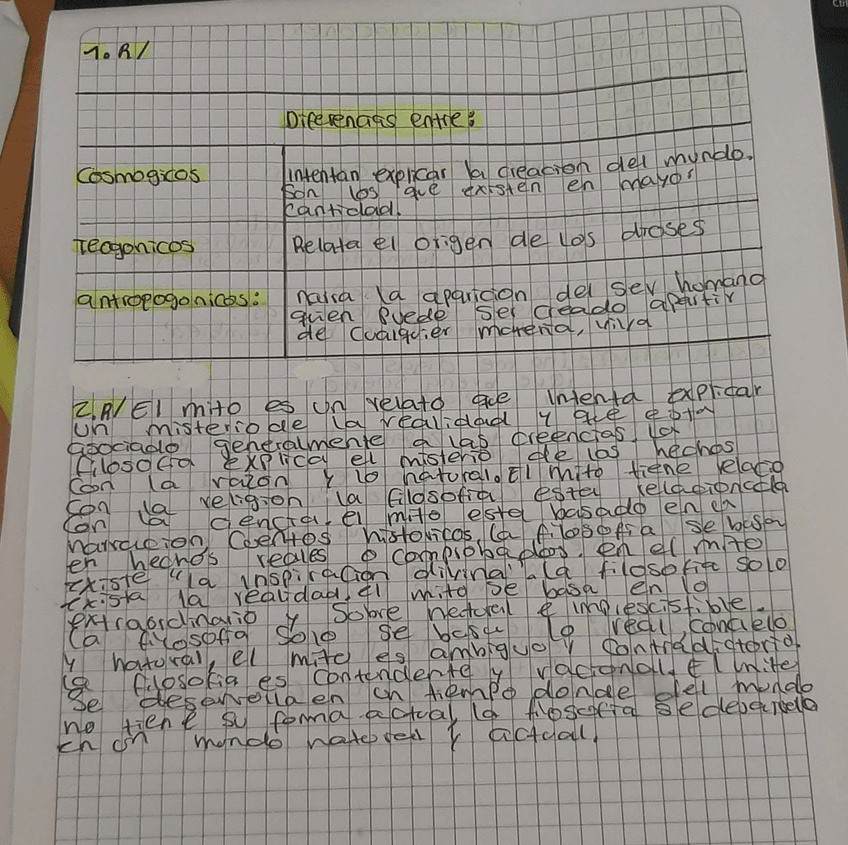 1. R/
Diferencias entre:
Cosmogicos
Intentan explicar la creacion del mundo.
Son los que existen en mayor
Cantidad.
Teogonicos
Relata el origen de los dioses
antropogonicos:
narra la aparicion del ser homano
quien puede ser creado apartir
de cualquier materia, viva
2.R/ El mito es un relato que intenta explicar
un misterio de la realidad y que esta
asociado generalmente a las creencias. la
filosofia explica el misterio de los hechos
con la razon y lo natural. El mito tiene relacio
con la religion la filosofia esta relacionada
con la ciencia. el mito esta basado en la
narracion, Cuentos historicos, la filosofia se basa
en hechos reales o comprobados. en el mito
existe "la inspiracion divina" la filosofia solo
exista la realidad. el mito se basa en lo
extraordinario y Sobre natural e
La filosofia solo se basa lo real,
y natural, el mito es ambiguo y contradictorio.
la filosofia es contendente y racional. El mite
se desarrolla en un tiempo donde del mundo
no tiene su forma actual, la filosofia se desarrolla
en un mundo natural y actual.